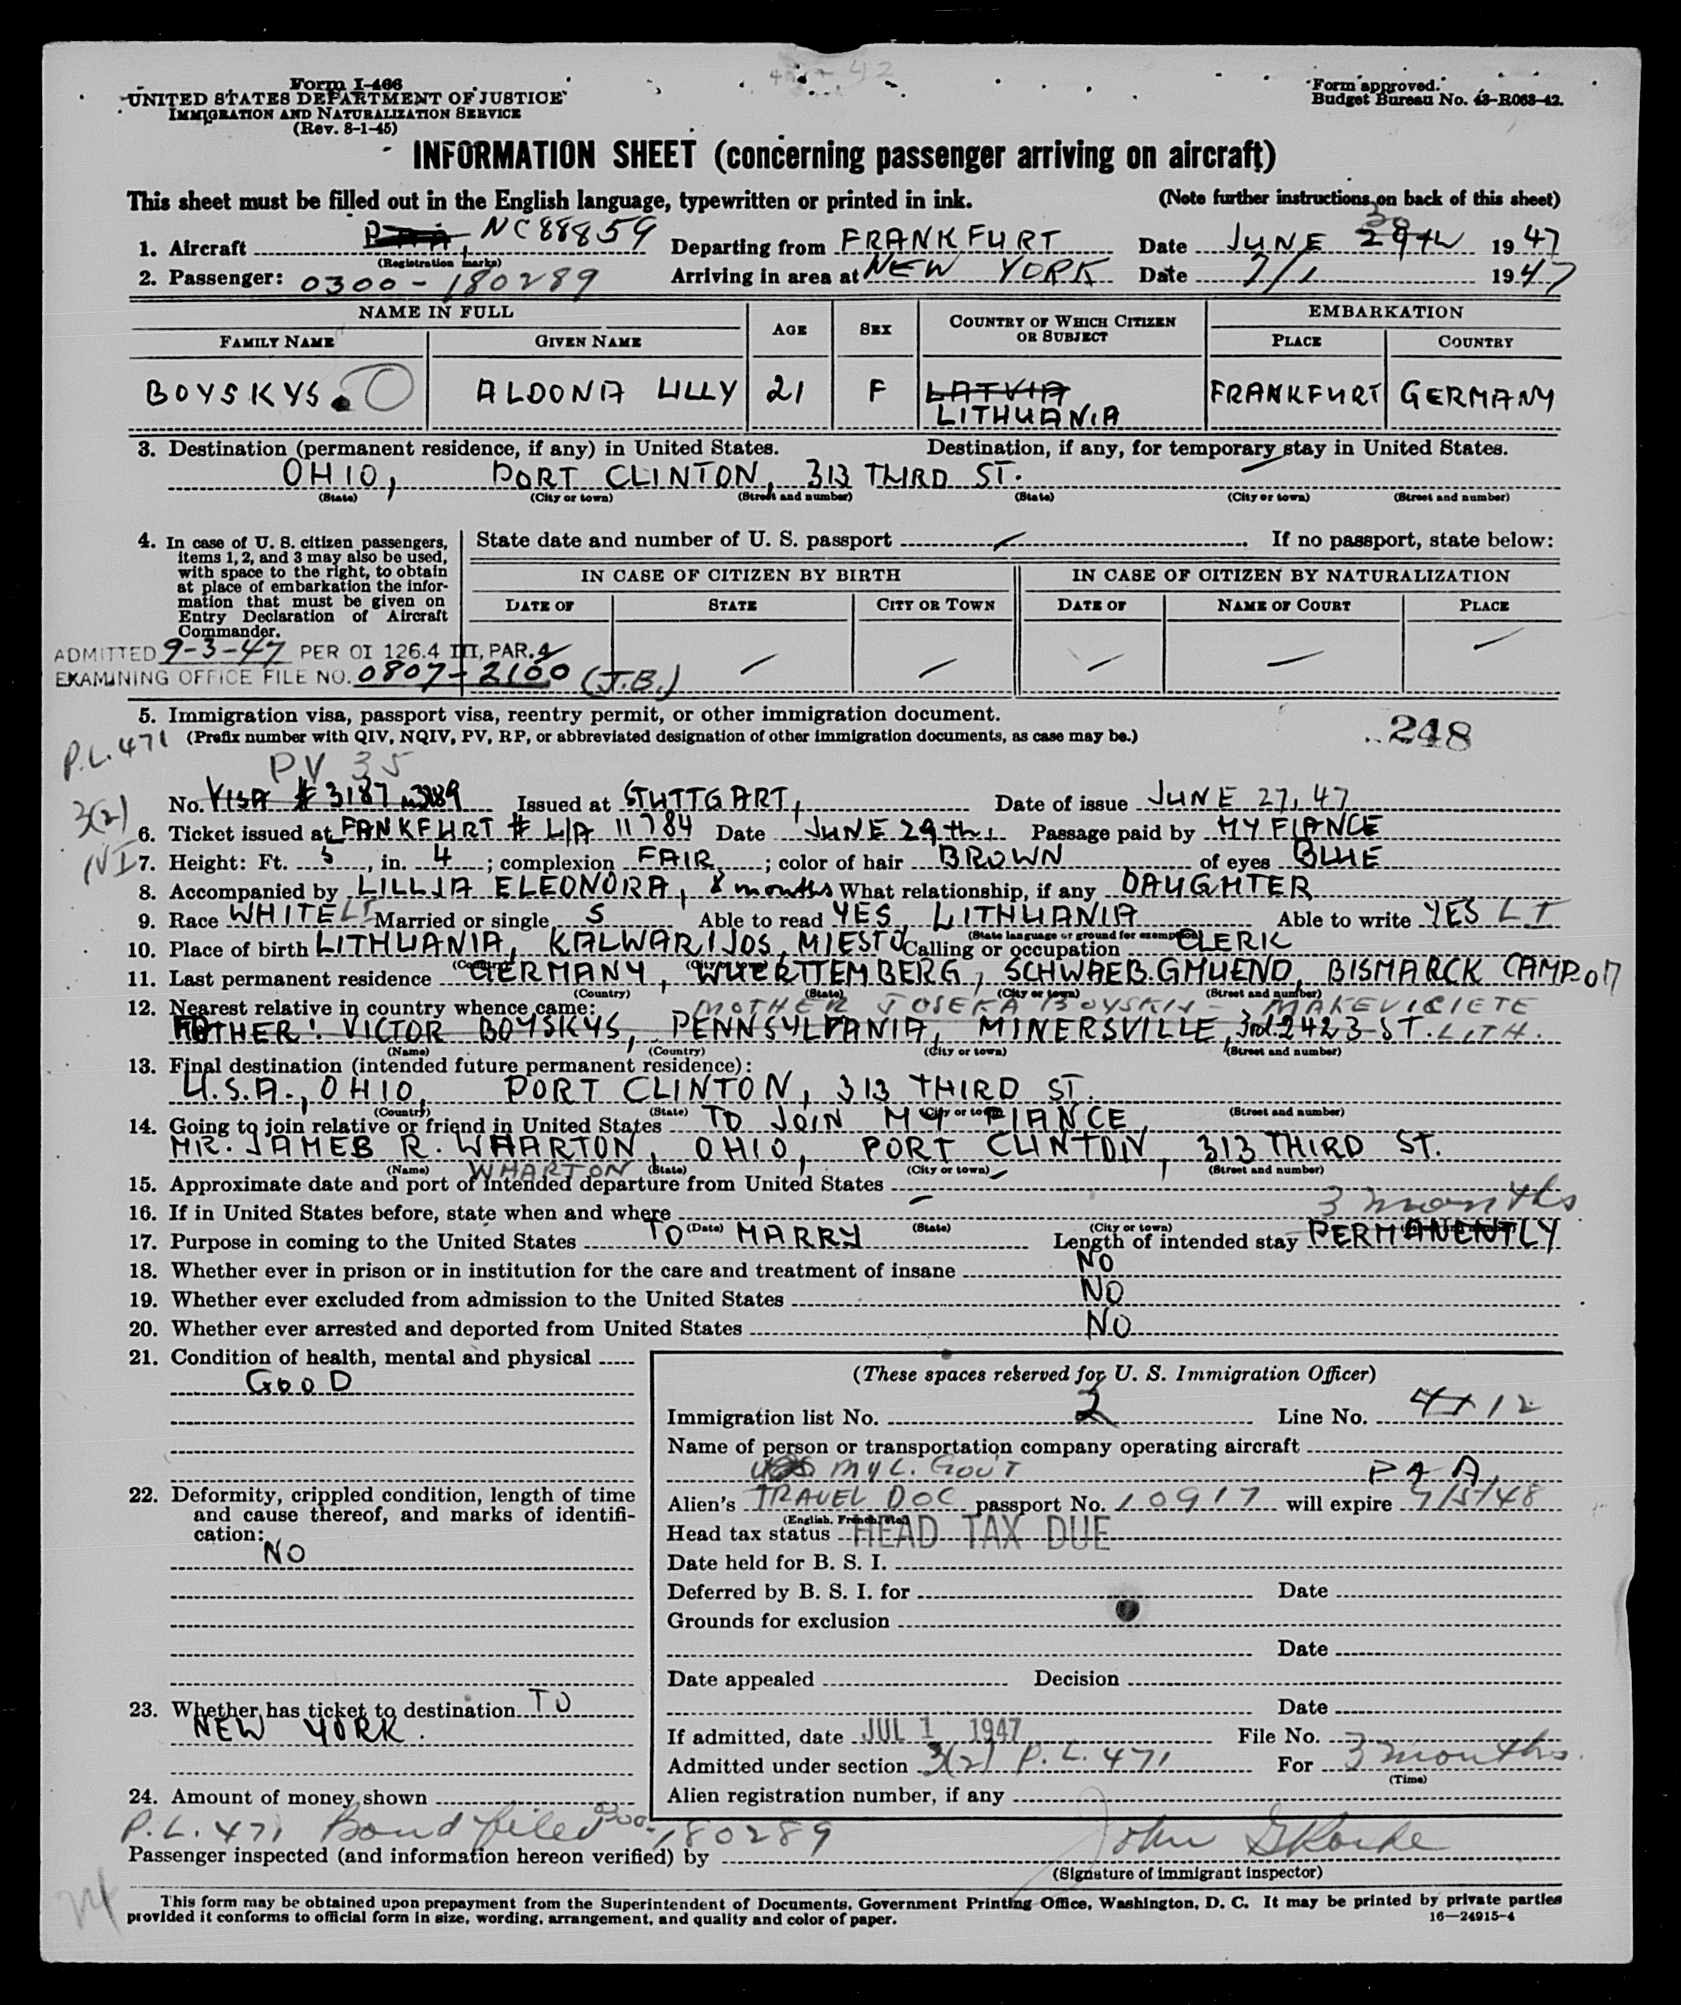 Form I-466
UNITED STATES DEPARTMENT OF JUSTICE
IMMIGRATION AND NATURALIZATION SERVICE
(Rev. 8-1-45)
Form approved.
Budget Bureau No. 43-R063-42.
INFORMATION SHEET (concerning passenger arriving on aircraft)
This sheet must be filled out in the English language, typewritten or printed in ink. (Note further instructions on back of this sheet)
1. Aircraft NC88859 Departing from FRANKFURT Date JUNE 30 29th 1947
(Registration marks)
2. Passenger: 0300-180289 Arriving in area at NEW YORK Date 7/1 1947
NAME IN FULL AGE SEX COUNTRY OF WHICH CITIZEN OR SUBJECT EMBARKATION
FAMILY NAME GIVEN NAME PLACE COUNTRY
BOYSKYS. ALDONA LILLY 21 F LATVIA LITHUANIA FRANKFURT GERMANY
3. Destination (permanent residence, if any) in United States. Destination, if any, for temporary stay in United States.
OHIO, PORT CLINTON, 313 THIRD ST.
(State) (City or town) (Street and number) (State) (City or town) (Street and number)
4. In case of U. S. citizen passengers, items 1, 2, and 3 may also be used, with space to the right, to obtain at place of embarkation the information that must be given on Entry Declaration of Aircraft Commander.
State date and number of U. S. passport If no passport, state below:
IN CASE OF CITIZEN BY BIRTH IN CASE OF CITIZEN BY NATURALIZATION
DATE OF STATE CITY OR TOWN DATE OF NAME OF COURT PLACE
ADMITTED 9-3-47 PER OI 126.4 III, PAR. 4
EXAMINING OFFICE FILE NO. 0807-2100 (J.B.)
5. Immigration visa, passport visa, reentry permit, or other immigration document.
248
P.L. 471 (Prefix number with QIV, NQIV, PV, RP, or abbreviated designation of other immigration documents, as case may be.)
PV 35
3(2)
No. VISA # 3187 Issued at STUTTGART, Date of issue JUNE 27, 47
6. Ticket issued at FANKFURT # L/A 11784 Date JUNE 29th, Passage paid by MY FIANCE
NI 7. Height: Ft. 5, in. 4; complexion FAIR; color of hair BROWN of eyes BLUE
8. Accompanied by LILLJA ELEONORA, 8 months What relationship, if any DAUGHTER
9. Race WHITE LI Married or single S Able to read YES, LITHUANIA Able to write YES LI
(State language or ground for exemption)
10. Place of birth LITHUANIA, KALWARIJOS, MIESTO Calling or occupation CLERK
11. Last permanent residence GERMANY, WUERTTEMBERG, SCHWAEB.GMUEND, BISMARCK CAMP
(Country) (State) (City or town) (Street and number)
12. Nearest relative in country whence came: MOTHER JOSEKA BOYSKIS - MAKEVICIETE
FOTHER: VICTOR BOYSKYS, PENNSYLVANIA, MINERSVILLE, 3rd 242 3-ST. LITH.
(Name) (Country) (City or town) (Street and number)
13. Final destination (intended future permanent residence):
U.S.A., OHIO, PORT CLINTON, 313 THIRD ST.
(Country) (State) (City or town) (Street and number)
14. Going to join relative or friend in United States TO JOIN MY FIANCE,
MR. JAMES R. WHARTON, OHIO, PORT CLINTON, 313 THIRD ST.
(Name) WHARTON (State) (City or town) (Street and number)
15. Approximate date and port of intended departure from United States
16. If in United States before, state when and where 3 months
(Date) (State) (City or town)
17. Purpose in coming to the United States TO MARRY Length of intended stay PERMANENTLY
18. Whether ever in prison or in institution for the care and treatment of insane NO
19. Whether ever excluded from admission to the United States NO
20. Whether ever arrested and deported from United States NO
21. Condition of health, mental and physical
GOOD
22. Deformity, crippled condition, length of time and cause thereof, and marks of identification:
NO
23. Whether has ticket to destination TO
NEW YORK.
24. Amount of money shown
(These spaces reserved for U. S. Immigration Officer)
Immigration list No. 2 Line No. 4+12
Name of person or transportation company operating aircraft
MYL. GOV'T PAA
Alien's TRAVEL DOC passport No. 10917 will expire 7/5/48
(English, French, etc.)
Head tax status HEAD TAX DUE
Date held for B. S. I.
Deferred by B. S. I. for Date
Grounds for exclusion
Date
Date appealed Decision
Date
If admitted, date JUL 1 1947 File No.
Admitted under section 3(2) P.L. 471 For 3 months
(Time)
Alien registration number, if any
P.L. 471 Bond filed 0300-180289
Passenger inspected (and information hereon verified) by John
(Signature of immigrant inspector)
This form may be obtained upon prepayment from the Superintendent of Documents, Government Printing Office, Washington, D. C. It may be printed by private parties
provided it conforms to official form in size, wording, arrangement, and quality and color of paper. 16—24915-4